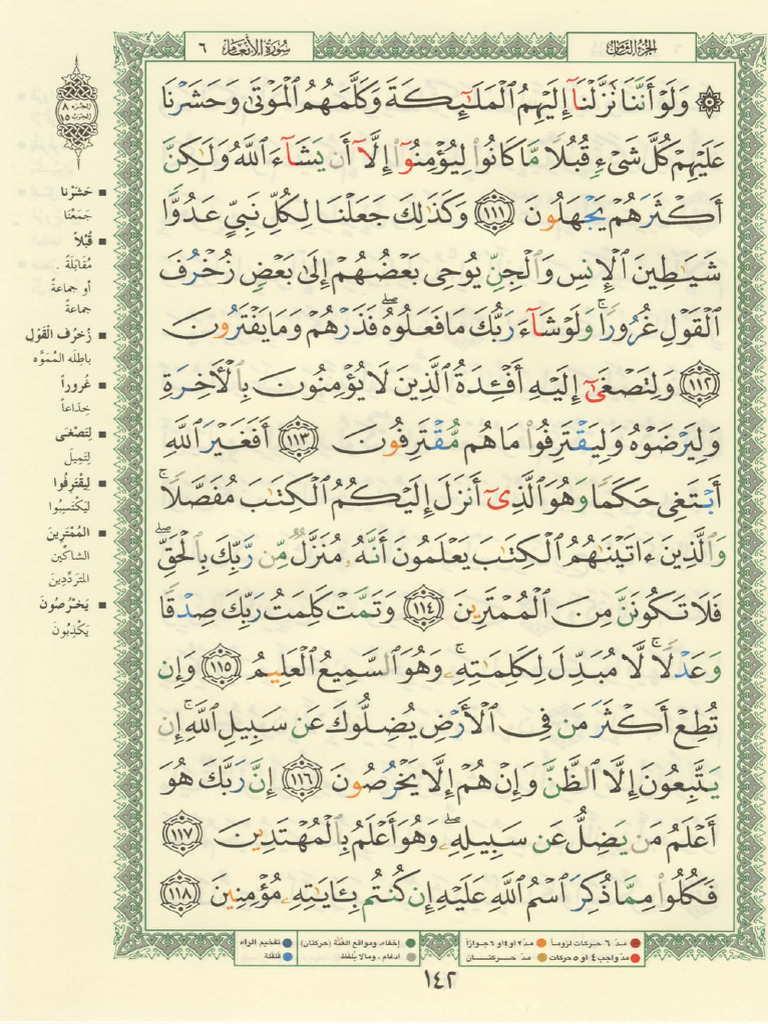 سُورَةُ الأَنْعَام ٦
الجزء الثامن
۞ وَلَوْ أَنَّنَا نَزَّلْنَآ إِلَيْهِمُ ٱلْمَلَٰٓئِكَةَ وَكَلَّمَهُمُ ٱلْمَوْتَىٰ وَحَشَرْنَا
عَلَيْهِمْ كُلَّ شَىْءٍ قُبُلًا مَّا كَانُوا۟ لِيُؤْمِنُوٓا۟ إِلَّآ أَن يَشَآءَ ٱللَّهُ وَلَٰكِنَّ
أَكْثَرَهُمْ يَجْهَلُونَ ١١١ وَكَذَٰلِكَ جَعَلْنَا لِكُلِّ نَبِىٍّ عَدُوًّا
شَيَٰطِينَ ٱلْإِنسِ وَٱلْجِنِّ يُوحِى بَعْضُهُمْ إِلَىٰ بَعْضٍ زُخْرُفَ
ٱلْقَوْلِ غُرُورًا ۚ وَلَوْ شَآءَ رَبُّكَ مَا فَعَلُوهُ ۖ فَذَرْهُمْ وَمَا يَفْتَرُونَ
١١٢ وَلِتَصْغَىٰٓ إِلَيْهِ أَفْـِٔدَةُ ٱلَّذِينَ لَا يُؤْمِنُونَ بِٱلْءَاخِرَةِ
وَلِيَرْضَوْهُ وَلِيَقْتَرِفُوا۟ مَا هُم مُّقْتَرِفُونَ ١١٣ أَفَغَيْرَ ٱللَّهِ
أَبْتَغِى حَكَمًا وَهُوَ ٱلَّذِىٓ أَنزَلَ إِلَيْكُمُ ٱلْكِتَٰبَ مُفَصَّلًا ۚ
وَٱلَّذِينَ ءَاتَيْنَٰهُمُ ٱلْكِتَٰبَ يَعْلَمُونَ أَنَّهُۥ مُنَزَّلٌ مِّن رَّبِّكَ بِٱلْحَقِّ ۖ
فَلَا تَكُونَنَّ مِنَ ٱلْمُمْتَرِينَ ١١٤ وَتَمَّتْ كَلِمَتُ رَبِّكَ صِدْقًا
وَعَدْلًا ۚ لَّا مُبَدِّلَ لِكَلِمَٰتِهِۦ ۚ وَهُوَ ٱلسَّمِيعُ ٱلْعَلِيمُ ١١٥ وَإِن
تُطِعْ أَكْثَرَ مَن فِى ٱلْأَرْضِ يُضِلُّوكَ عَن سَبِيلِ ٱللَّهِ ۚ إِن
يَتَّبِعُونَ إِلَّا ٱلظَّنَّ وَإِنْ هُمْ إِلَّا يَخْرُصُونَ ١١٦ إِنَّ رَبَّكَ هُوَ
أَعْلَمُ مَن يَضِلُّ عَن سَبِيلِهِۦ ۖ وَهُوَ أَعْلَمُ بِٱلْمُهْتَدِينَ ١١٧
فَكُلُوا۟ مِمَّا ذُكِرَ ٱسْمُ ٱللَّهِ عَلَيْهِ إِن كُنتُم بِـَٔايَٰتِهِۦ مُؤْمِنِينَ ١١٨
الجزء ٨
الحزب ١٥
حَشَرْنا
جَمَعْنَا
قُبُلاً
مُقَابَلَةً .
أو جماعةً
جماعةً
زُخْرُف الْقَوْل
باطِلَه المُمَوَّه
غُروراً
خِدَاعاً
لِتَصْغَى
لِتَمِيلَ
لِيقْتَرِفُوا
لِيَكْتَسِبُوا
المُمْتَرِينَ
الشاكّين
المتردِّدِينَ
يَخْرُصُونَ
يَكْذِبُونَ
مدّ ٦ حركات لزوماً
مدّ ٢ أو ٤ أو ٦ جوازاً
إخفاء، ومواقع الغُنَّة (حركتان)
تفخيم الراء
مدّ واجب ٤ أو ٥ حركات
مدّ حركتان
ادغام، ومالا يُلفَظ
قلقلة
١٤٢